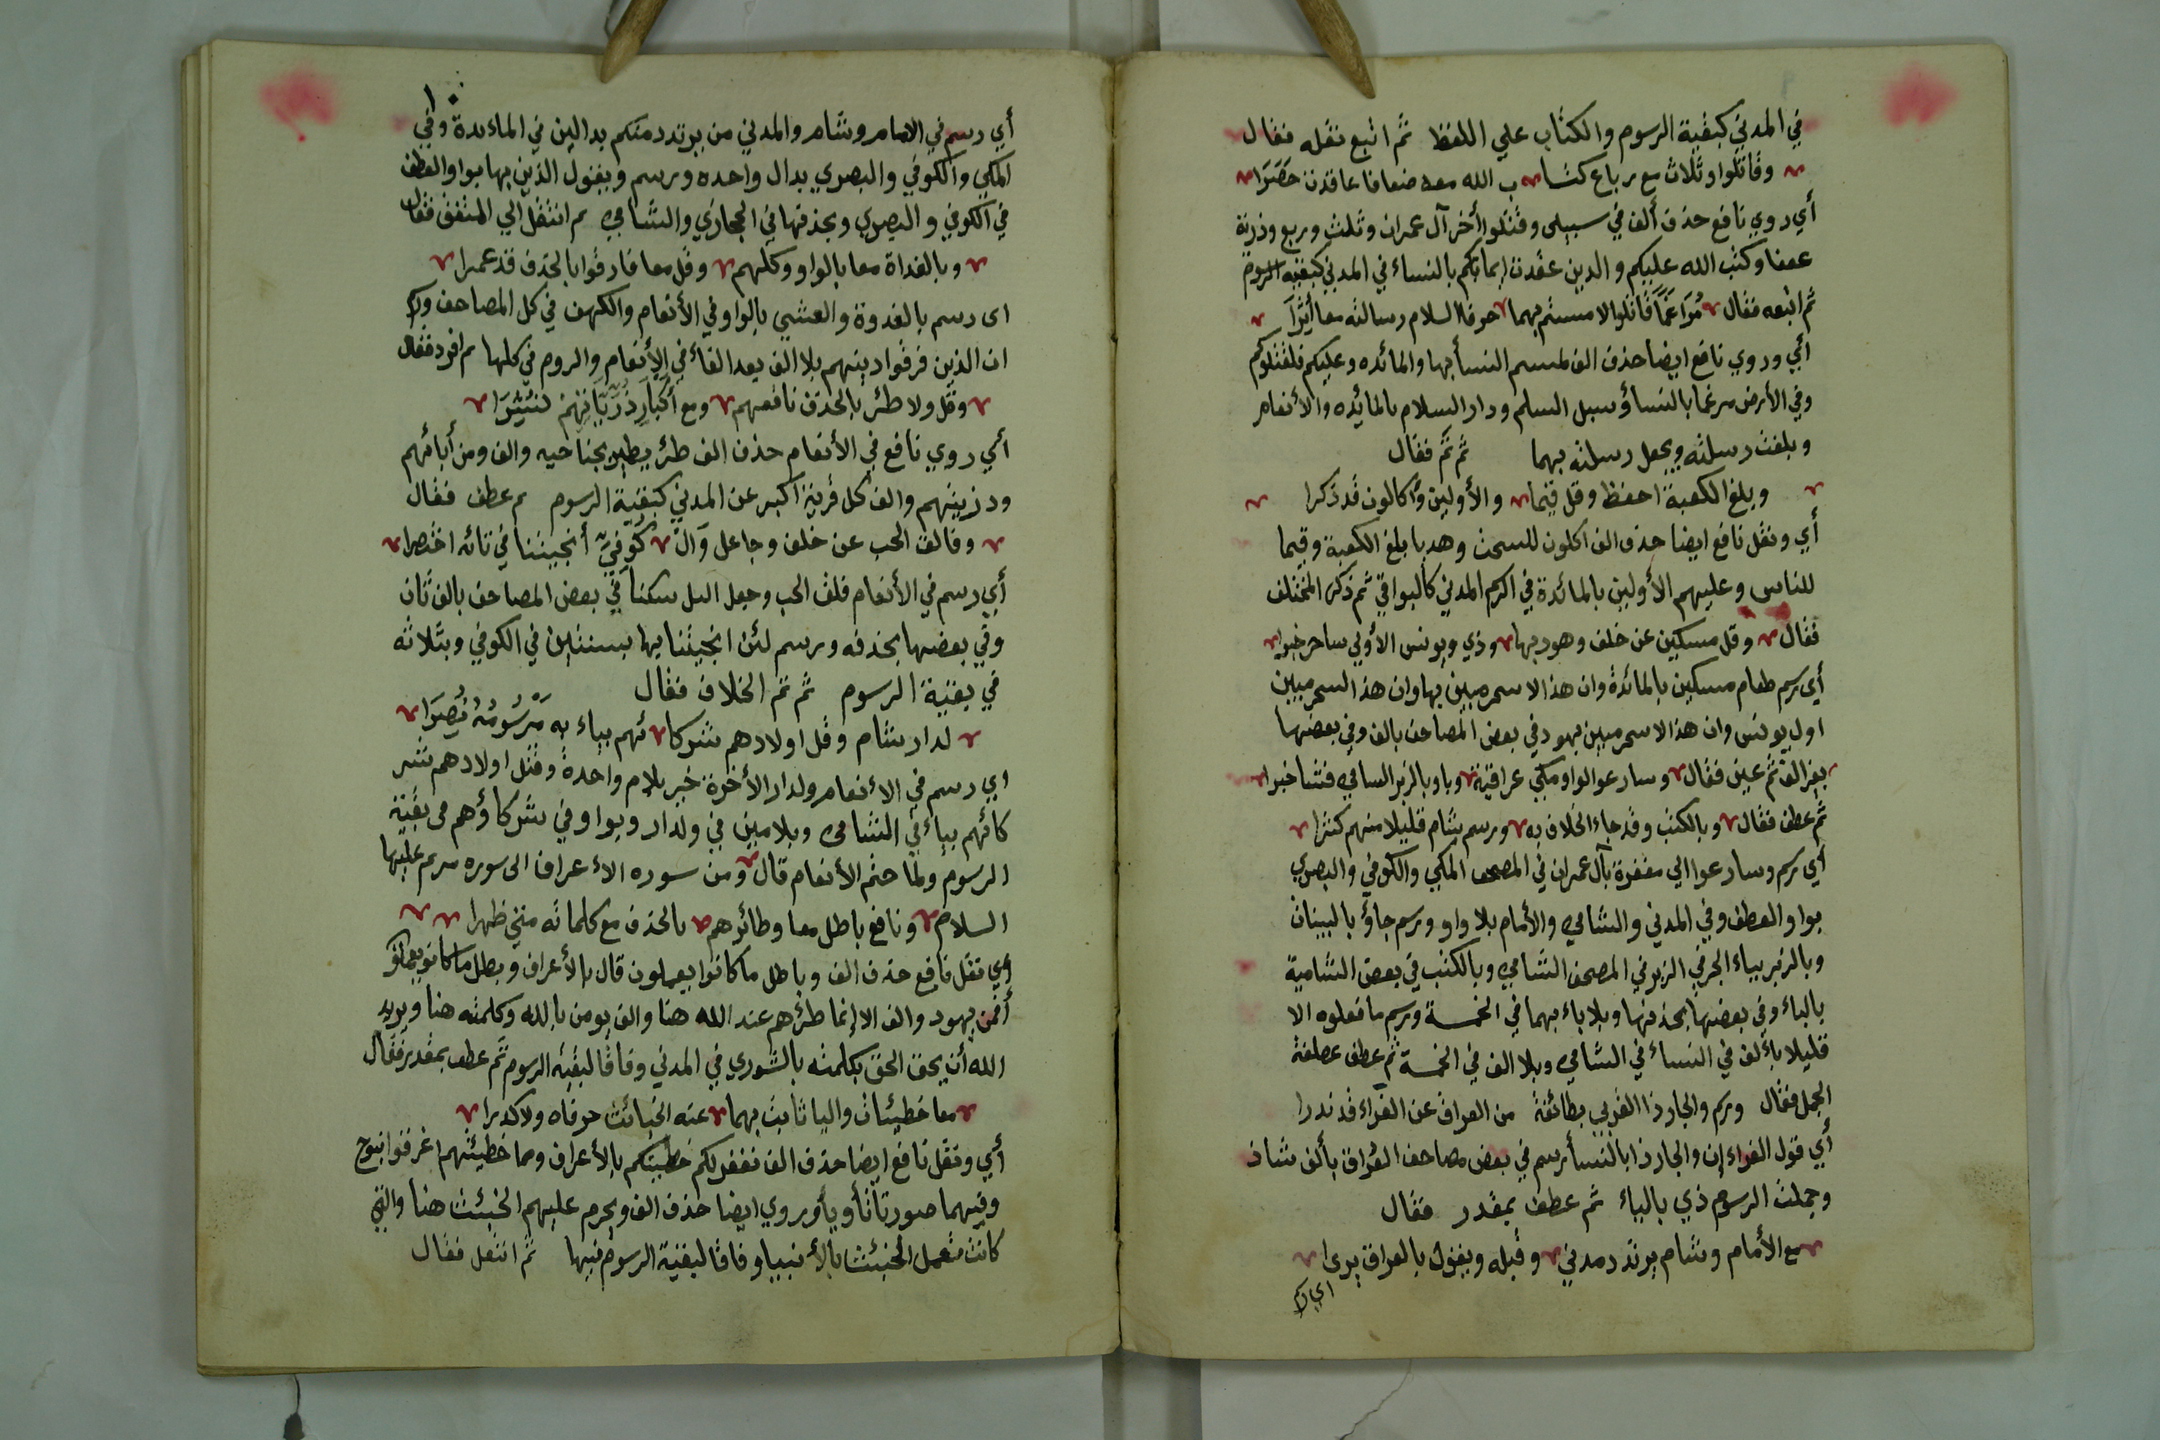 في المدني كبقية الرسوم والكتاب علي اللفظ ثم اتبع نقله فقال
وقاتلوا وثلاث مع رباع كتا ب الله معه ضعافا عاقدت حصرا
أي روي نافع حذف ألف في سبيلى وقتلوا أخر آل عمران وثلث وربع وذرية
ضعفا وكتب الله عليكم والدين عقدت ايمانكم بالنساء في المدني كبقية الرسوم
ثم اتبعه فقال مراغما قاتلوا لامستم بهما حرفا السلام رسالته معا أثرا
أي وروي نافع ايضا حذف الف لمستم النسأ بها والمائده وعليكم فلقتلوكم
وفي الأرض مرغما بالنساؤ سبل السلم ودار السلام بالمائده والأنعام
وبلغت رسلته ويجعل رسلته بهما ثم تمم فقال
وبلغ الكعبة احفظ وقل قيما والأولين وأكالون قد ذكرا
أي ونقل نافع ايضا حذف الف اكلون للسحت وهديا بلغ الكعبة وقيما
للناس وعليهم الأولين بالمائدة في الرسم المدني كالبواقي ثم ذكر المختلف
فقال وقل مسكين عن خلف وهود بها وذي ويونس الأولي ساحر خبرا
أي رسم طعام مسكين بالمائدة وان هذا الا سحر مبين بها وان هذا السحر مبين
اول يونس وان هذا الا سحر مبين بهود في بعض المصاحف بالف وفي بعضها
بغير الف ثم عين فقال وسارعوا الواو مكي عراقية وبا وبالزبر الشامي فشا خبرا
ثم عطف فقال وبالكتب وقد جاء الخلاف به ورسم شام قليلا منهم كثرا
أي رسم وسارعوا الي مغفرة بآل عمران في المصحف المكي والكوفي والبصري
بواو العطف وفي المدني والشامي والأمام بلا واو ورسم جاؤ بالبينات
وبالزبر بياء الجر في الزبر في المصحف الشامي وبالكتب في بعض الشامية
بالباء وفي بعضها بحذفها وبلا باء بهما في الخمسة ورسم ما فعلوه الا
قليلا بألف في النساء في الشامي وبلا الف في الخمسة ثم عطف عطفة
الجمل فقال ورسم والجار ذا القربي بطائفة من العراق عن الفراء قد ندرا
أي قول الفراء إن والجار ذا بالنسأ رسم في بعض مصاحف العراق بألف شاذ
وجملت الرسوم ذي بالياء ثم عطف بمقدر فقال
مع الأمام وشام يرتدد مدني وقبله ويقول بالعراق يرى
اي رسم
١٠
أي رسم في الامام وشام والمدني من يرتدد منكم بدالين في المائدة وفي
المكي والكوفي والبصري بدال واحده ورسم ويقول الذين بها بواو العطف
في الكوفي والبصري وبحذفها في الحجازي والشامي ثم انتقل الي المتفق فقال
وبالغداة معا بالواو وكلهم وقل معا فارقوا بالحذف قد عمرا
اى رسم بالغدوة والعشي بالواو في الأنعام والكهف في كل المصاحف ورسم
ان الذين فرقوا دينهم بلا الف بعد الفاء في الأنعام والروم في كلها ثم افرد فقال
وقل ولا طئر بالحذف نافعهم ومع أكابر ذرياتهم نشرا
أي روي نافع في الأنعام حذف الف طئر يطير بجناحيه والف ومن أبائهم
وذريتهم والف كل قرية اكبر عن المدني كبقية الرسوم ثم عطف فقال
وفالق الحب عن خلف وجاعل وال كوفي أنجيتنا في تائه اختصرا
أي رسم في الأنعام فلق الحب وجعل اليل سكنا في بعض المصاحف بالف ثان
وفي بعضها بحذفه ورسم لئن انجيتنا بها بسنتين في الكوفي وبثلاثه
في بقية الرسوم ثم تمم الخلاف فقال
لدار شام وقل اولادهم شركا ئهم بياء به مرسومه نصرا
اي رسم في الأنعام ولدار الأخرة خير بلام واحدة وقتل اولادهم شر
كائهم بياء في الشامي وبلامين في وللدار وبواو في شركاؤهم في بقية
الرسوم ولما ختم الأنعام قال ومن سوره الأعراف الى سوره مريم عليها
السلام ونافع باطل معا وطائرهم بالحذف مع كلماته متي ظهرا
أي نقل نافع حذف الف وباطل ما كانوا يعملون قال بالأعراف وبطل ما كانو يعملو
أفمن بهود والف الا إنما طئرهم عند الله هنا والف يومن بالله وكلمته هنا ويريد
الله أن يحق الحق بكلمته بالشوري في المدني وفاقا لبقية الرسوم ثم عطف بمقدر فقال
معا خطيئات واليا ثابت بهما عنه الخبائث حرفاه ولا كدرا
أي ونقل نافع ايضا حذف الف نغفر لكم خطيتكم بالأعراف ومما خطيئتهم اغرقوا بنوح
وفيهما صورتا تأ ويا وروي ايضا حذف الف ويحرم عليهم الخبئث هنا والتي
كانت تعمل الخبئث بالأنبيا وفاقا لبقية الرسوم فيها ثم انتقل فقال